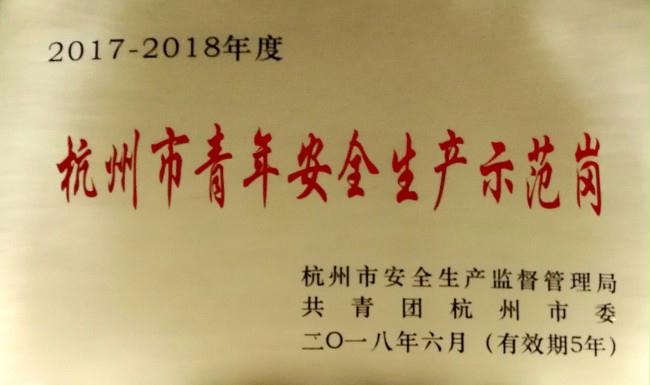 2017-2018年度
杭州市青年安全生产示范岗
杭州市安全生产监督管理局
共青团杭州市委
二〇一八年六月（有效期5年）